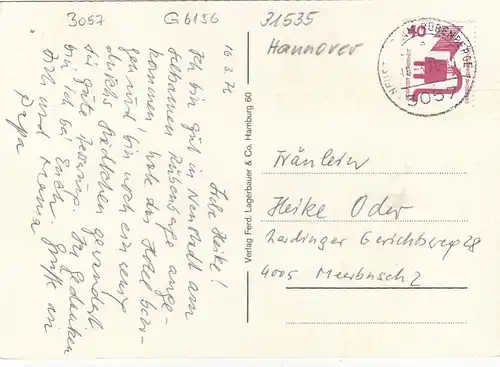 3057
G 6156
31535
Hannover
16.3.76
Liebe Heike!
Ich bin gut in Neustadt am
Rübenberge ange-
kommen, habe das Hotel bezo-
gen und bin noch ein wenig
durchs Städtchen gewandert
In Gedanken
bin ich bei Euch. Grüße an
Dich und Mama
Papa
Verlag Ferd. Lagerbauer & Co. Hamburg 60
40
RÜBENBERGE
3057
Fräulein
Heike Oder
Gerichtsweg 28
4005 Meerbusch 2